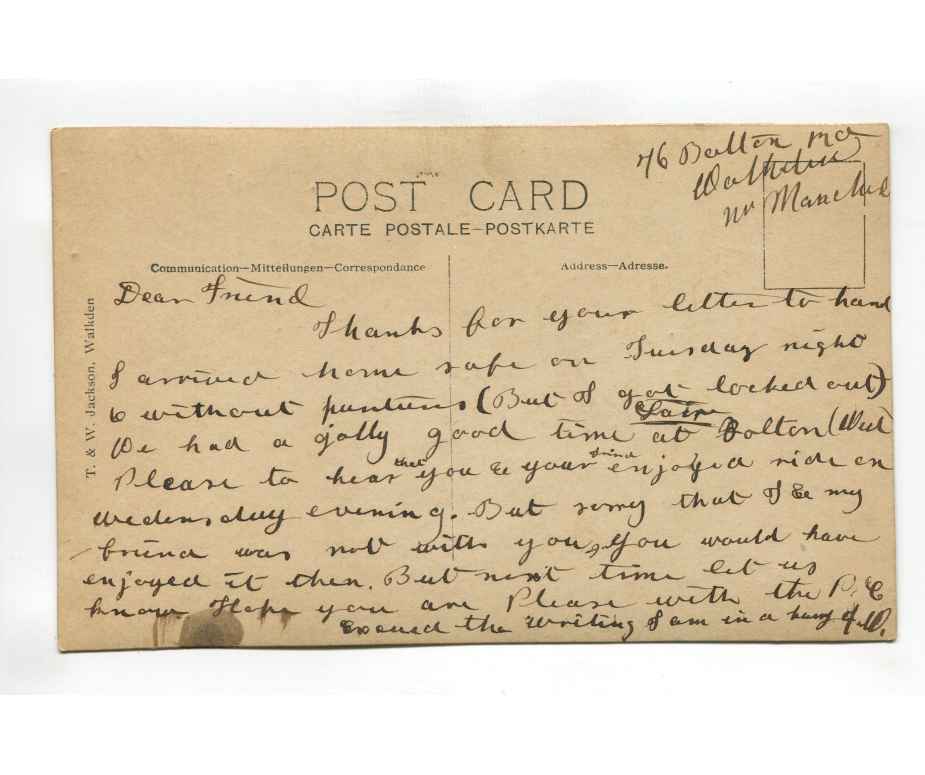 76 Bolton rd
Walkden
nr Manches
POST CARD
CARTE POSTALE–POSTKARTE
Communication—Mitteilungen—Correspondance
Address—Adresse.
T. & W. Jackson, Walkden
Dear Friend
Thanks for your letter to hand
I arrived home safe on Tuesday night
& without (But I got locked out)
Fair
We had a jolly good time at Bolton (Wed
Please to hear that you & your friend enjoyed ride on
Wedensday evening. But sorry that I & my
friend was not with you, you would have
enjoyed it then. But next time let us
know Hope you are Please with the P. C
Excused the writing I am in a hurry